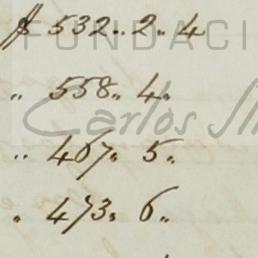 $ 532.. 2.. 4
FUNDACI
„ 558.. 4..
Carlos Sli
„ 467.. 5..
„ 473.. 6..